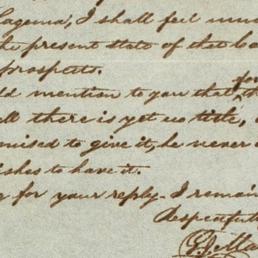 Laguna, I shall feel
the present state of that
prospects.
mention to you that for
there is yet no title,
to give it, he never
to have it.
for your reply. I remain
Respectfully